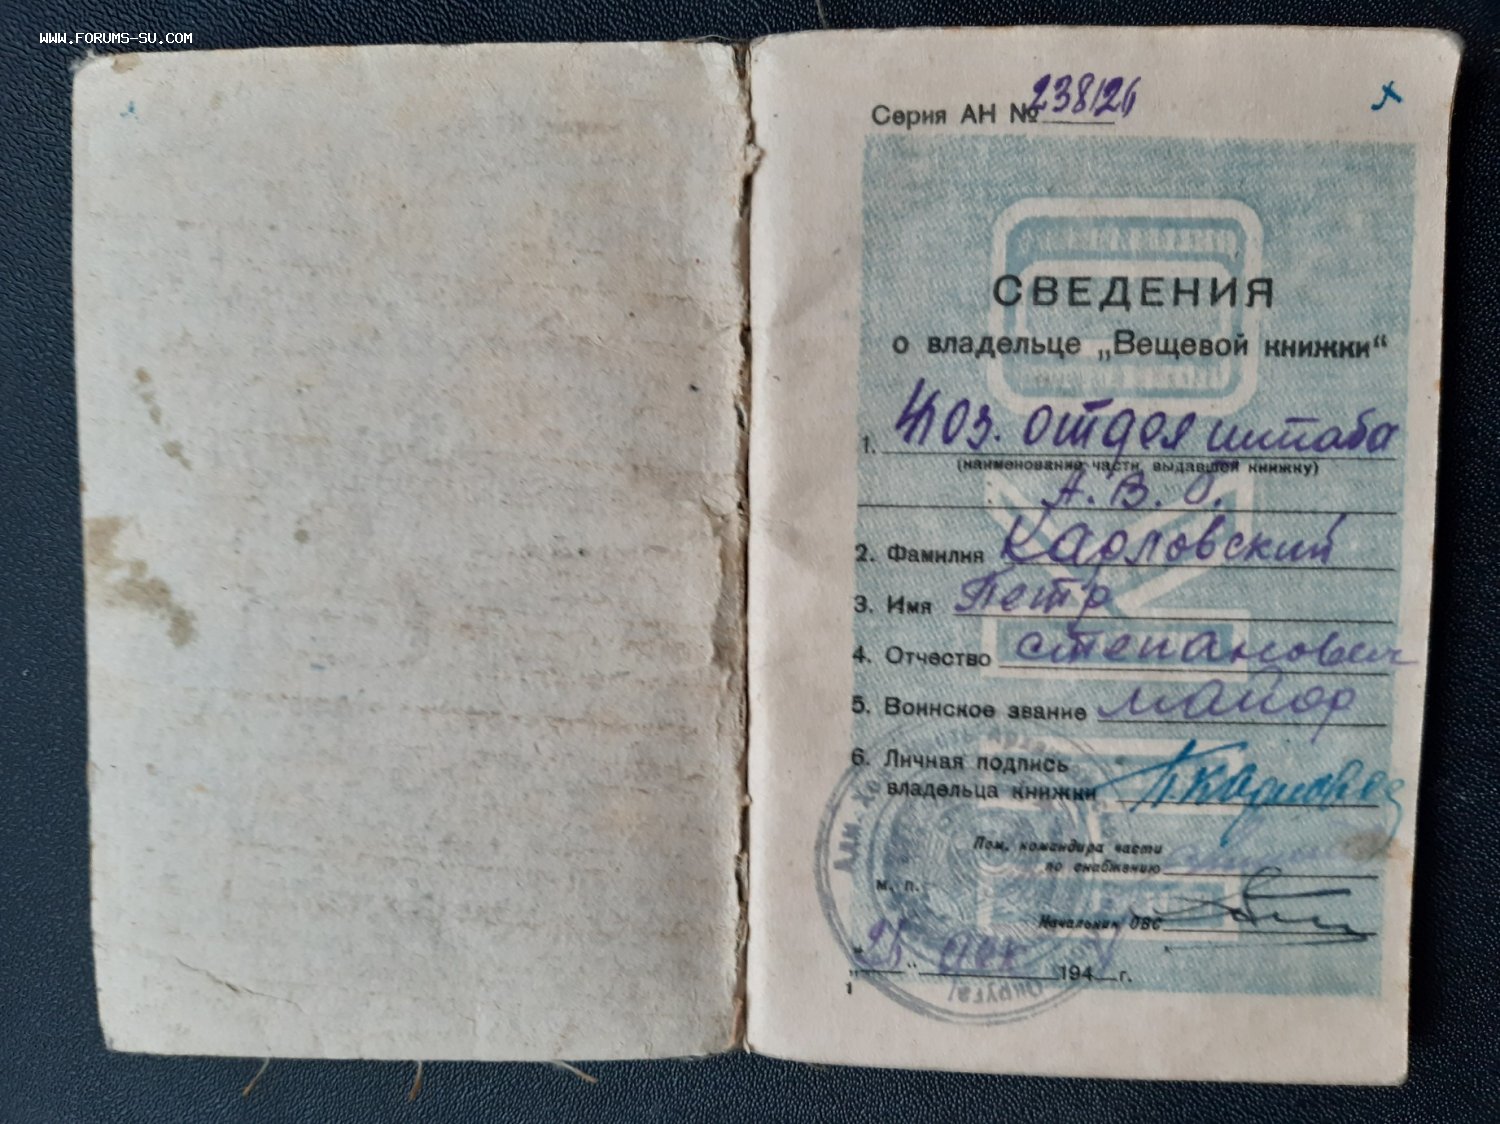 WWW.FORUMS-SU.COM
Серия АН № 238126
СВЕДЕНИЯ
о владельце „Вещевой книжки“
1. отдел штаба
(наименование части, выдавшей книжку)
А. В. О.
2. Фамилия Карловский
3. Имя Петр
4. Отчество Степанович
5. Воинское звание майор
6. Личная подпись
владельца книжки
Пом. командира части
по снабжению
м. п.
Начальник ОВС
"25" дек 194 г.
1